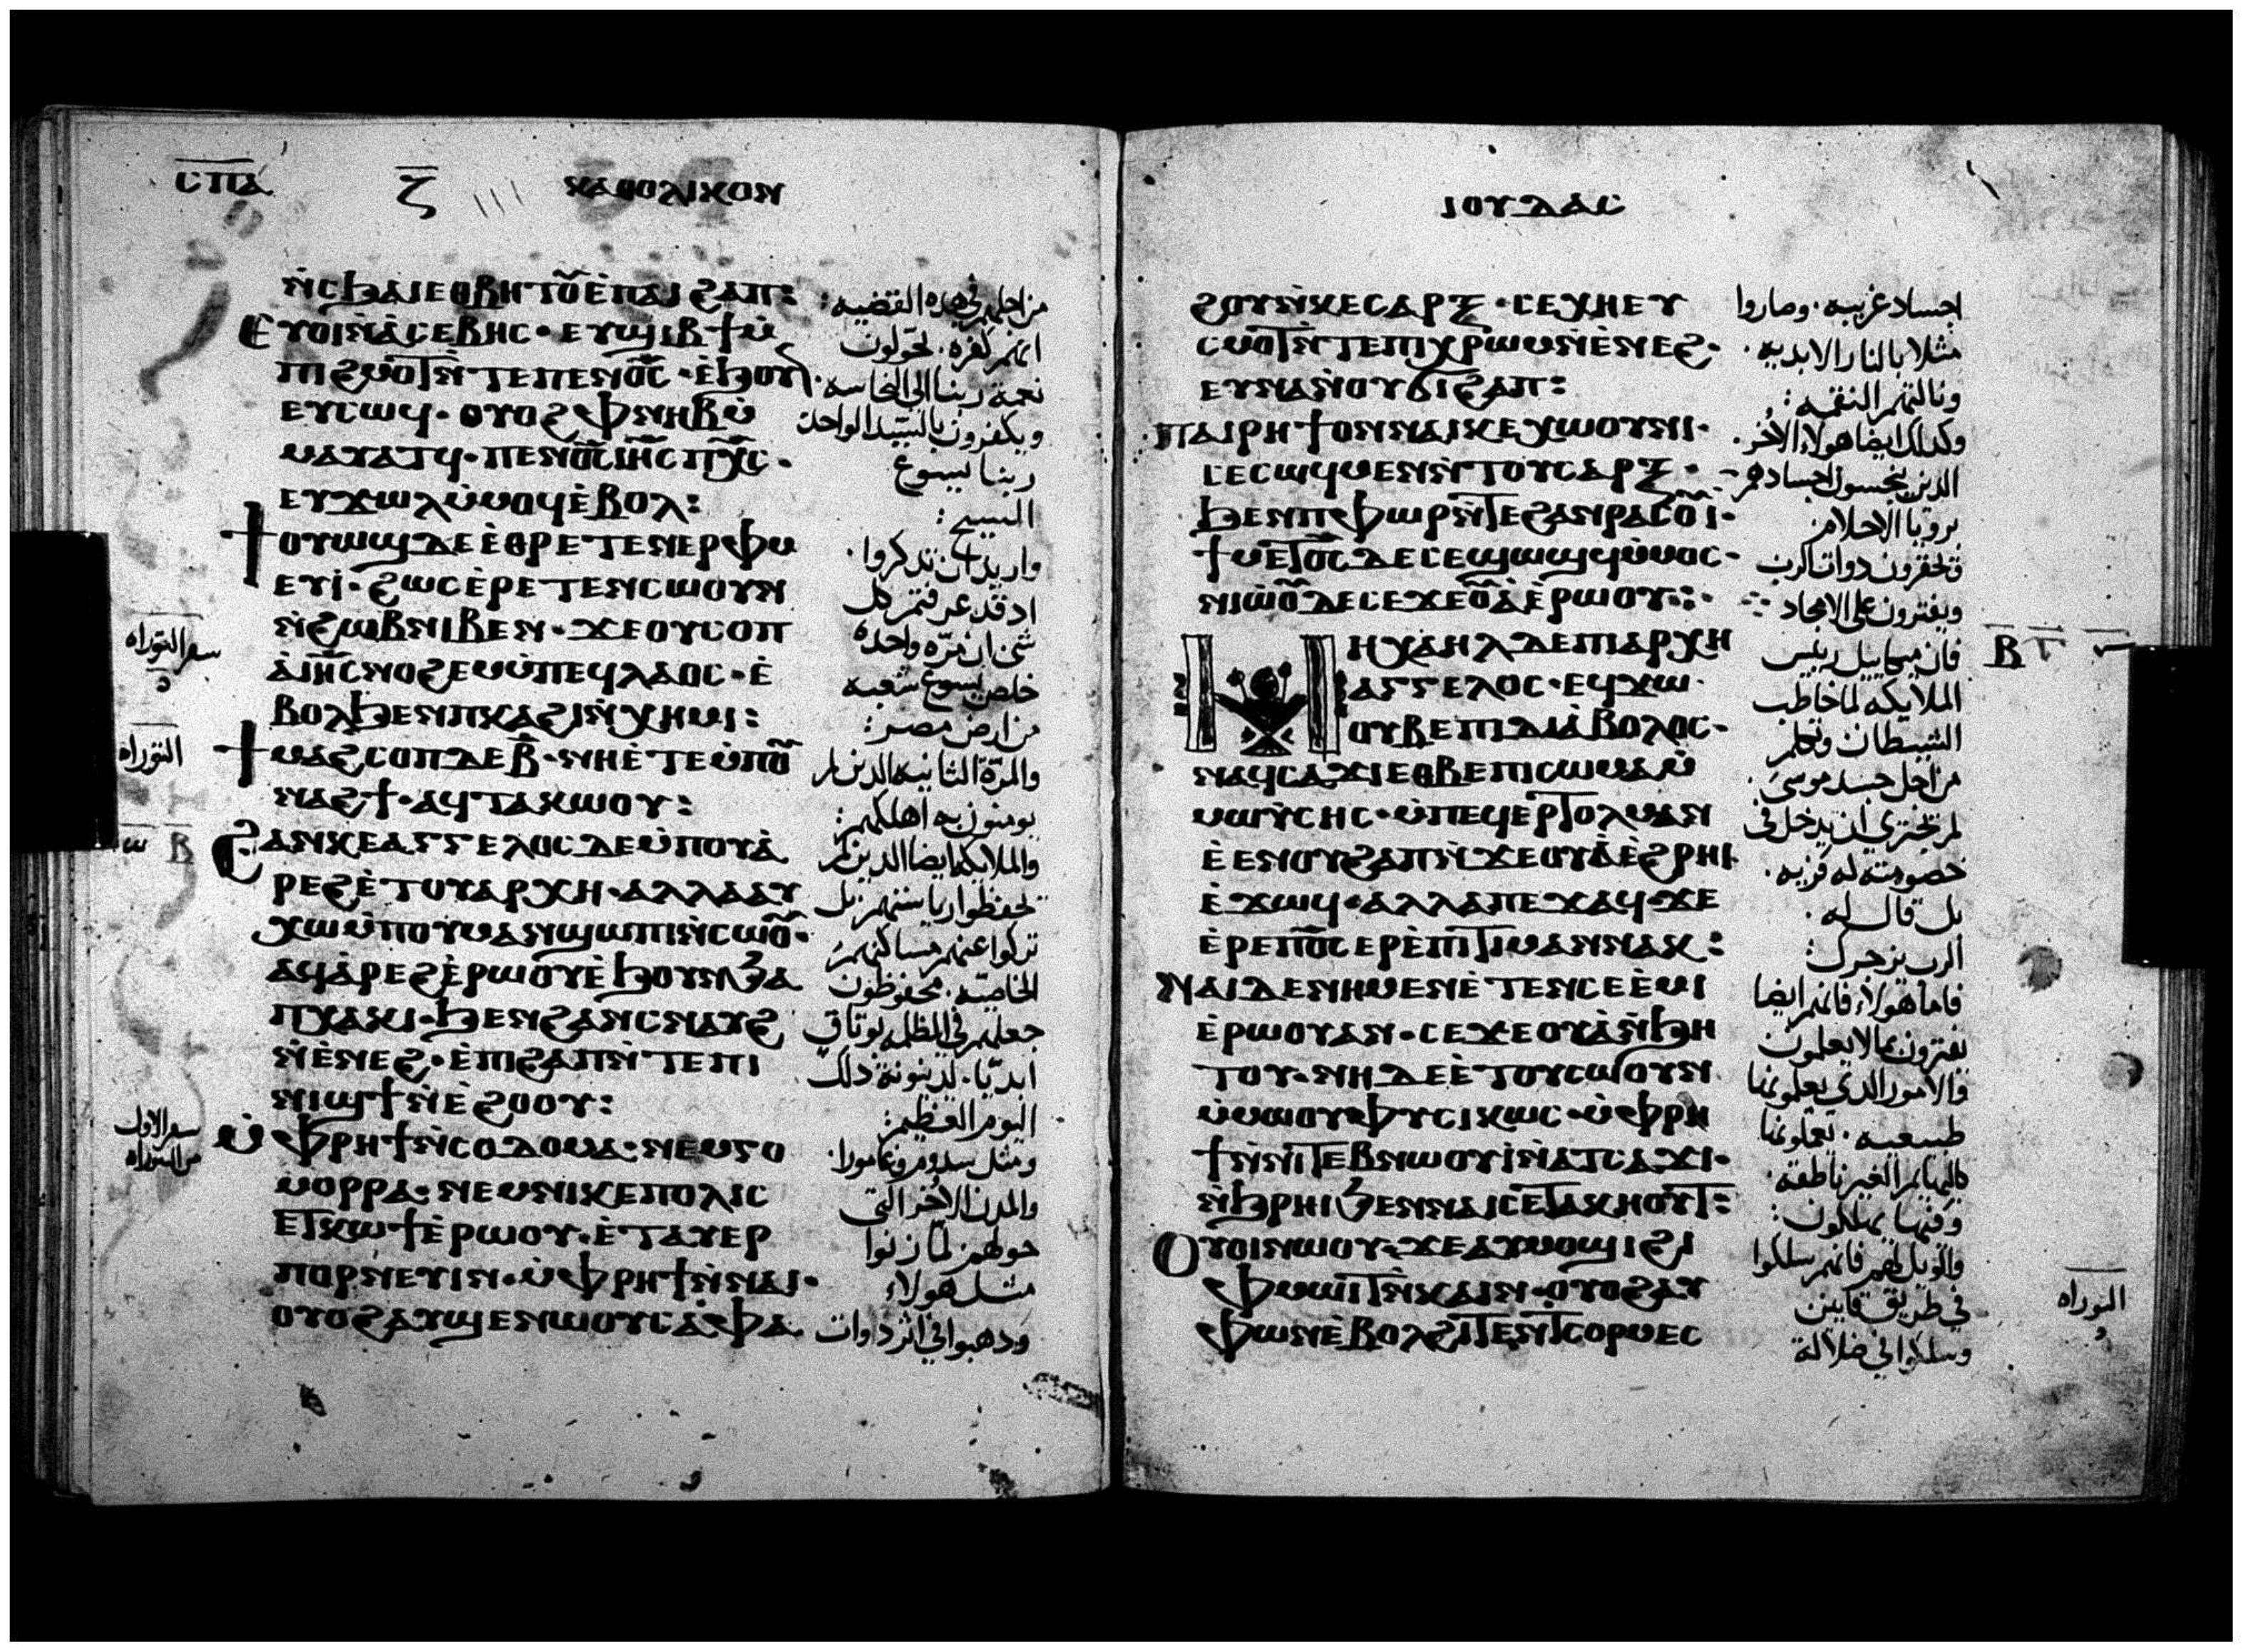 ⲤⲠⲀ
Ⲍ
ⲔⲀⲐⲞⲖⲒⲔⲞⲚ
ⲛ̀ⲥϧⲁⲓⲉⲑⲃⲏⲧⲟ̅ⲩ̅ⲉ̀ⲡⲁⲓϩⲁⲡ:
Ⲉⲩⲟⲓⲛ̀ⲁ̀ⲥⲉⲃⲏⲥ·ⲉⲩϣⲓⲃϯⲙ̀
ⲡⲓϩⲙⲟⲧⲛ̀ⲧⲉⲡⲉⲛⲟ̅ⲥ̅·ⲉ̀ϧⲟⲩⲛ·
ⲉⲩⲥⲱϥ·ⲟⲩⲟϩⲫⲛⲏⲃⲙ̀
ⲙⲁⲩⲁⲧϥ·ⲡⲉⲛⲟ̅ⲥ̅ⲓⲏ̅ⲥⲡⲭ̅ⲥ·
ⲉⲩϫⲱⲗⲙ̀ⲙⲟϥⲉ̀ⲃⲟⲗ:
ϯⲟⲩⲱϣⲇⲉⲉ̀ⲑⲣⲉⲧⲉⲛⲉⲣⲫⲙ
ⲉⲩⲓ̀·ϩⲱⲥⲉ̀ⲣⲉⲧⲉⲛⲥⲱⲟⲩⲛ
ⲛ̀ϩⲱⲃⲛⲓⲃⲉⲛ·ϫⲉⲟⲩⲥⲟⲡ
ⲁ̀ⲓⲏ̅ⲥⲛⲟϩⲉⲙⲙ̀ⲡⲉϥⲗⲁⲟⲥ·ⲉ̀
ⲃⲟⲗϧⲉⲛⲡⲕⲁϩⲓⲛ̀ⲭⲏⲙⲓ:
ϯⲙⲁϩⲥⲟⲡⲇⲉⲃ̅·ⲛⲏⲉ̀ⲧⲉⲙ̀ⲡⲟ̅ⲩ̅
ⲛⲁϩϯ·ⲁϥⲧⲁⲕⲱⲟⲩ:
Ϩⲁⲛⲕⲉⲁⲅⲅⲉⲗⲟⲥⲇⲉⲙ̀ⲡⲟⲩⲁ̀
ⲣⲉϩⲉ̀ⲧⲟⲩⲁⲣⲭⲏ·ⲁⲗⲗⲁⲁⲩ
ⲭⲱⲙ̀ⲡⲟⲩⲙⲁⲛϣⲱⲡⲓⲛ̀ⲥⲱⲟ̅ⲩ̅·
ⲁϥⲁ̀ⲣⲉϩⲉ̀ⲣⲱⲟⲩⲉ̀ϧⲟⲩⲛϧⲁ
ⲡⲭⲁⲕⲓ·ϧⲉⲛϩⲁⲛⲥⲛⲁⲩϩ
ⲛ̀ⲉ̀ⲛⲉϩ·ⲉ̀ⲡⲓϩⲁⲡⲛ̀ⲧⲉⲡⲓ
ⲛⲓϣϯⲛ̀ⲉ̀ϩⲟⲟⲩ:
ⲙ̀ⲫⲣⲏϯⲛ̀ⲥⲟⲇⲟⲙⲁ·ⲛⲉⲙⲅⲟ
ⲙⲟⲣⲣⲁ·ⲛⲉⲙⲛⲓⲕⲉⲡⲟⲗⲓⲥ
ⲉⲧⲕⲱϯⲉ̀ⲣⲱⲟⲩ·ⲉ̀ⲧⲁⲩⲉⲣ
ⲡⲟⲣⲛⲉⲩⲓⲛ·ⲙ̀ⲫⲣⲏϯⲛ̀ⲛⲁⲓ·
ⲟⲩⲟϩⲁⲩϣⲉⲛⲱⲟⲩⲥⲁ̀ⲫⲁ
من اجلهم في هذه القضيه:
انهم كفره· يحولون
نعمة ربنا الى النجاسه
ويكفرون بالسيد الواحد
ربنا يسوع
المسيح:
واريد ان تذكروا·
اد قد عرفتم كل
شي ان مره واحده
خلص يسوع شعبه
من ارض مصر:
والمرة الثانيه الدين لم
يومنون به اهلكهم:
والملايكه ايضا الدين لم
يحفظوا رياستهم بل
تركوا عنهم مساكنهم
الخاصه· محفوظون
جعلهم في الظلمه بوثاق
ابديا· لدينونة دلك
اليوم العظيم:
ومثل سدوم وغامورا·
والمدن الاخر التي
حولهم لما زنوا
مثل هولاء
ودهبوا في اثر دوات
سفر التوراه
التوراه
ⲱ Ⲃ
سفر الاول
من التوراه
ⲒⲞⲨⲆⲀⲤ
ϩⲟⲩⲛ̀ⲕⲉⲥⲁⲣⲝ·ⲥⲉⲭⲏⲉⲩ
ⲥⲙⲟⲧⲛ̀ⲧⲉⲡⲓⲭⲣⲱⲙⲛ̀ⲉ̀ⲛⲉϩ·
ⲉⲩⲛⲁⲛ̀ⲟⲩϭⲓϩⲁⲡ:
ⲡⲁⲓⲣⲏϯⲟⲛⲛⲁⲓⲕⲉⲭⲱⲟⲩⲛⲓ·
ⲥⲉⲥⲱϥⲙⲉⲛⲛ̀ⲧⲟⲩⲥⲁⲣⲝ·
ϧⲉⲛⲡⲫⲱⲣⲛ̀ⲧⲉϩⲁⲛⲣⲁⲥⲟ̅ⲩ̅ⲓ·
ϯⲙⲉⲧⲟ̅ⲥ̅ⲇⲉⲥⲉϣⲱϣϥⲙ̀ⲙⲟⲥ·
ⲛⲓⲱ̀ⲟ̅ⲩ̅ⲇⲉⲥⲉϫⲉⲟ̅ⲩ̅ⲁ̀ⲉ̀ⲣⲱⲟⲩ:·
Ⲙⲏⲭⲁⲏⲗⲇⲉⲡⲓⲁⲣⲭⲏ
ⲁⲅⲅⲉⲗⲟⲥ·ⲉϥϫⲱ
ⲟⲩⲃⲉⲡⲓⲇⲓⲁ̀ⲃⲟⲗⲟⲥ·
ⲛⲁϥⲥⲁϫⲓⲉⲑⲃⲉⲡⲓⲥⲱⲙⲁⲙ̀
ⲙⲱⲩ̀ⲥⲏⲥ·ⲙ̀ⲡⲉϥⲉⲣⲧⲟⲗⲙⲁⲛ
ⲉ̀ⲉⲛⲟⲩϩⲁⲡⲛ̀ϫⲉⲟⲩⲁ̀ⲉ̀ϩⲣⲏⲓ
ⲉ̀ϫⲱϥ·ⲁⲗⲗⲁⲡⲉϫⲁϥ·ϫⲉ
ⲉ̀ⲣⲉⲡⲟ̅ⲥ̅ⲉⲣⲉ̀ⲡⲓⲧⲓⲙⲁⲛⲛⲁⲕ:
Ⲛⲁⲓⲇⲉⲛⲏⲙⲉⲛⲉ̀ⲧⲉⲛⲥⲉⲉ̀ⲙⲓ
ⲉ̀ⲣⲱⲟⲩⲁⲛ·ⲥⲉϫⲉⲟⲩⲁ̀ⲛ̀ϧⲏ
ⲧⲟⲩ·ⲛⲏⲇⲉⲉ̀ⲧⲟⲩⲥⲱⲟⲩⲛ
ⲙ̀ⲙⲱⲟⲩⲫⲩⲥⲓⲕⲱⲥ·ⲙ̀ⲫⲣⲏ
ϯⲛ̀ⲛⲓⲧⲉⲃⲛⲱⲟⲩⲓ̀ⲛ̀ⲁⲧⲥⲁϫⲓ·
ⲛ̀ϧⲣⲏⲓϧⲉⲛⲛⲁⲓⲥⲉⲧⲁⲕⲏⲟⲩⲧ:
Ⲟⲩⲟⲓⲛⲱⲟⲩ·ϫⲉⲁⲩⲙⲟϣⲓϩⲓ
ⲫⲙⲱⲓⲧⲛ̀ⲕⲁⲓⲛ·ⲟⲩⲟϩⲁⲩ
ⲫⲱⲛⲉ̀ⲃⲟⲗϩⲓⲧⲉⲛϯⲥⲟⲣⲙⲉⲥ
اجساد غريبه· وصاروا
مثلا بالنار الابديه·
ونالتهم النقمه:
وكدلك ايضا هولاء الاخر·
الدين ينجسون اجسادهم
برويا الاحلام·
ويحقرون دوات الرب
ويفترون على الامجاد
فان ميخاييل رييس
الملايكه لما خاطب
الشيطان وتكلم
من اجل جسد موسى·
لم يجتري ان يدخل في
خصومته له فريه·
بل قال له·
الرب يزجرك:
فاما هولاء فانهم ايضا
يفترون بما لا يعلمون
والامور الدي يعلمونها
طبيعيه· يعلمونها
كالبهايم الغير ناطقه·
وفيها يهلكون:
والويل لهم فانهم سلكوا
في طريق قايين
وسلكوا في ضلالة
Ⲃ Ⲅ
التوراه